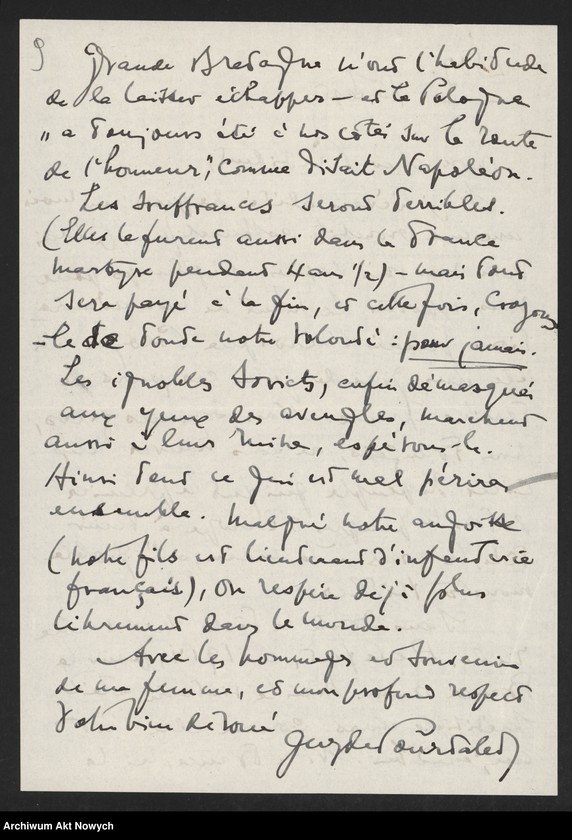 9 Grande Bretagne n'ont l'habitude
de la laisser échapper — et la Pologne
„a toujours été à nos côtés sur la route
de l'honneur", comme disait Napoléon.
Les souffrances seront terribles.
(Elles le furent aussi dans la France
martyre pendant 4 ans 1/2) — mais tout
sera payé à la fin, et cette fois, croyons
-le de toute notre volonté : pour jamais.
Les ignobles Soviets, enfin démasqués
aux yeux des aveugles, marchent
aussi à leur ruine, espérons-le.
Ainsi tout ce qui est mal périra
ensemble. Malgré notre angoisse
(notre fils est lieutenant d'infanterie
française), on respire déjà plus
librement dans le monde.
Avec les hommages et souvenirs
de ma femme, et mon profond respect
Votre bien dévoué
Guy de Pourtalès
Archiwum Akt Nowych